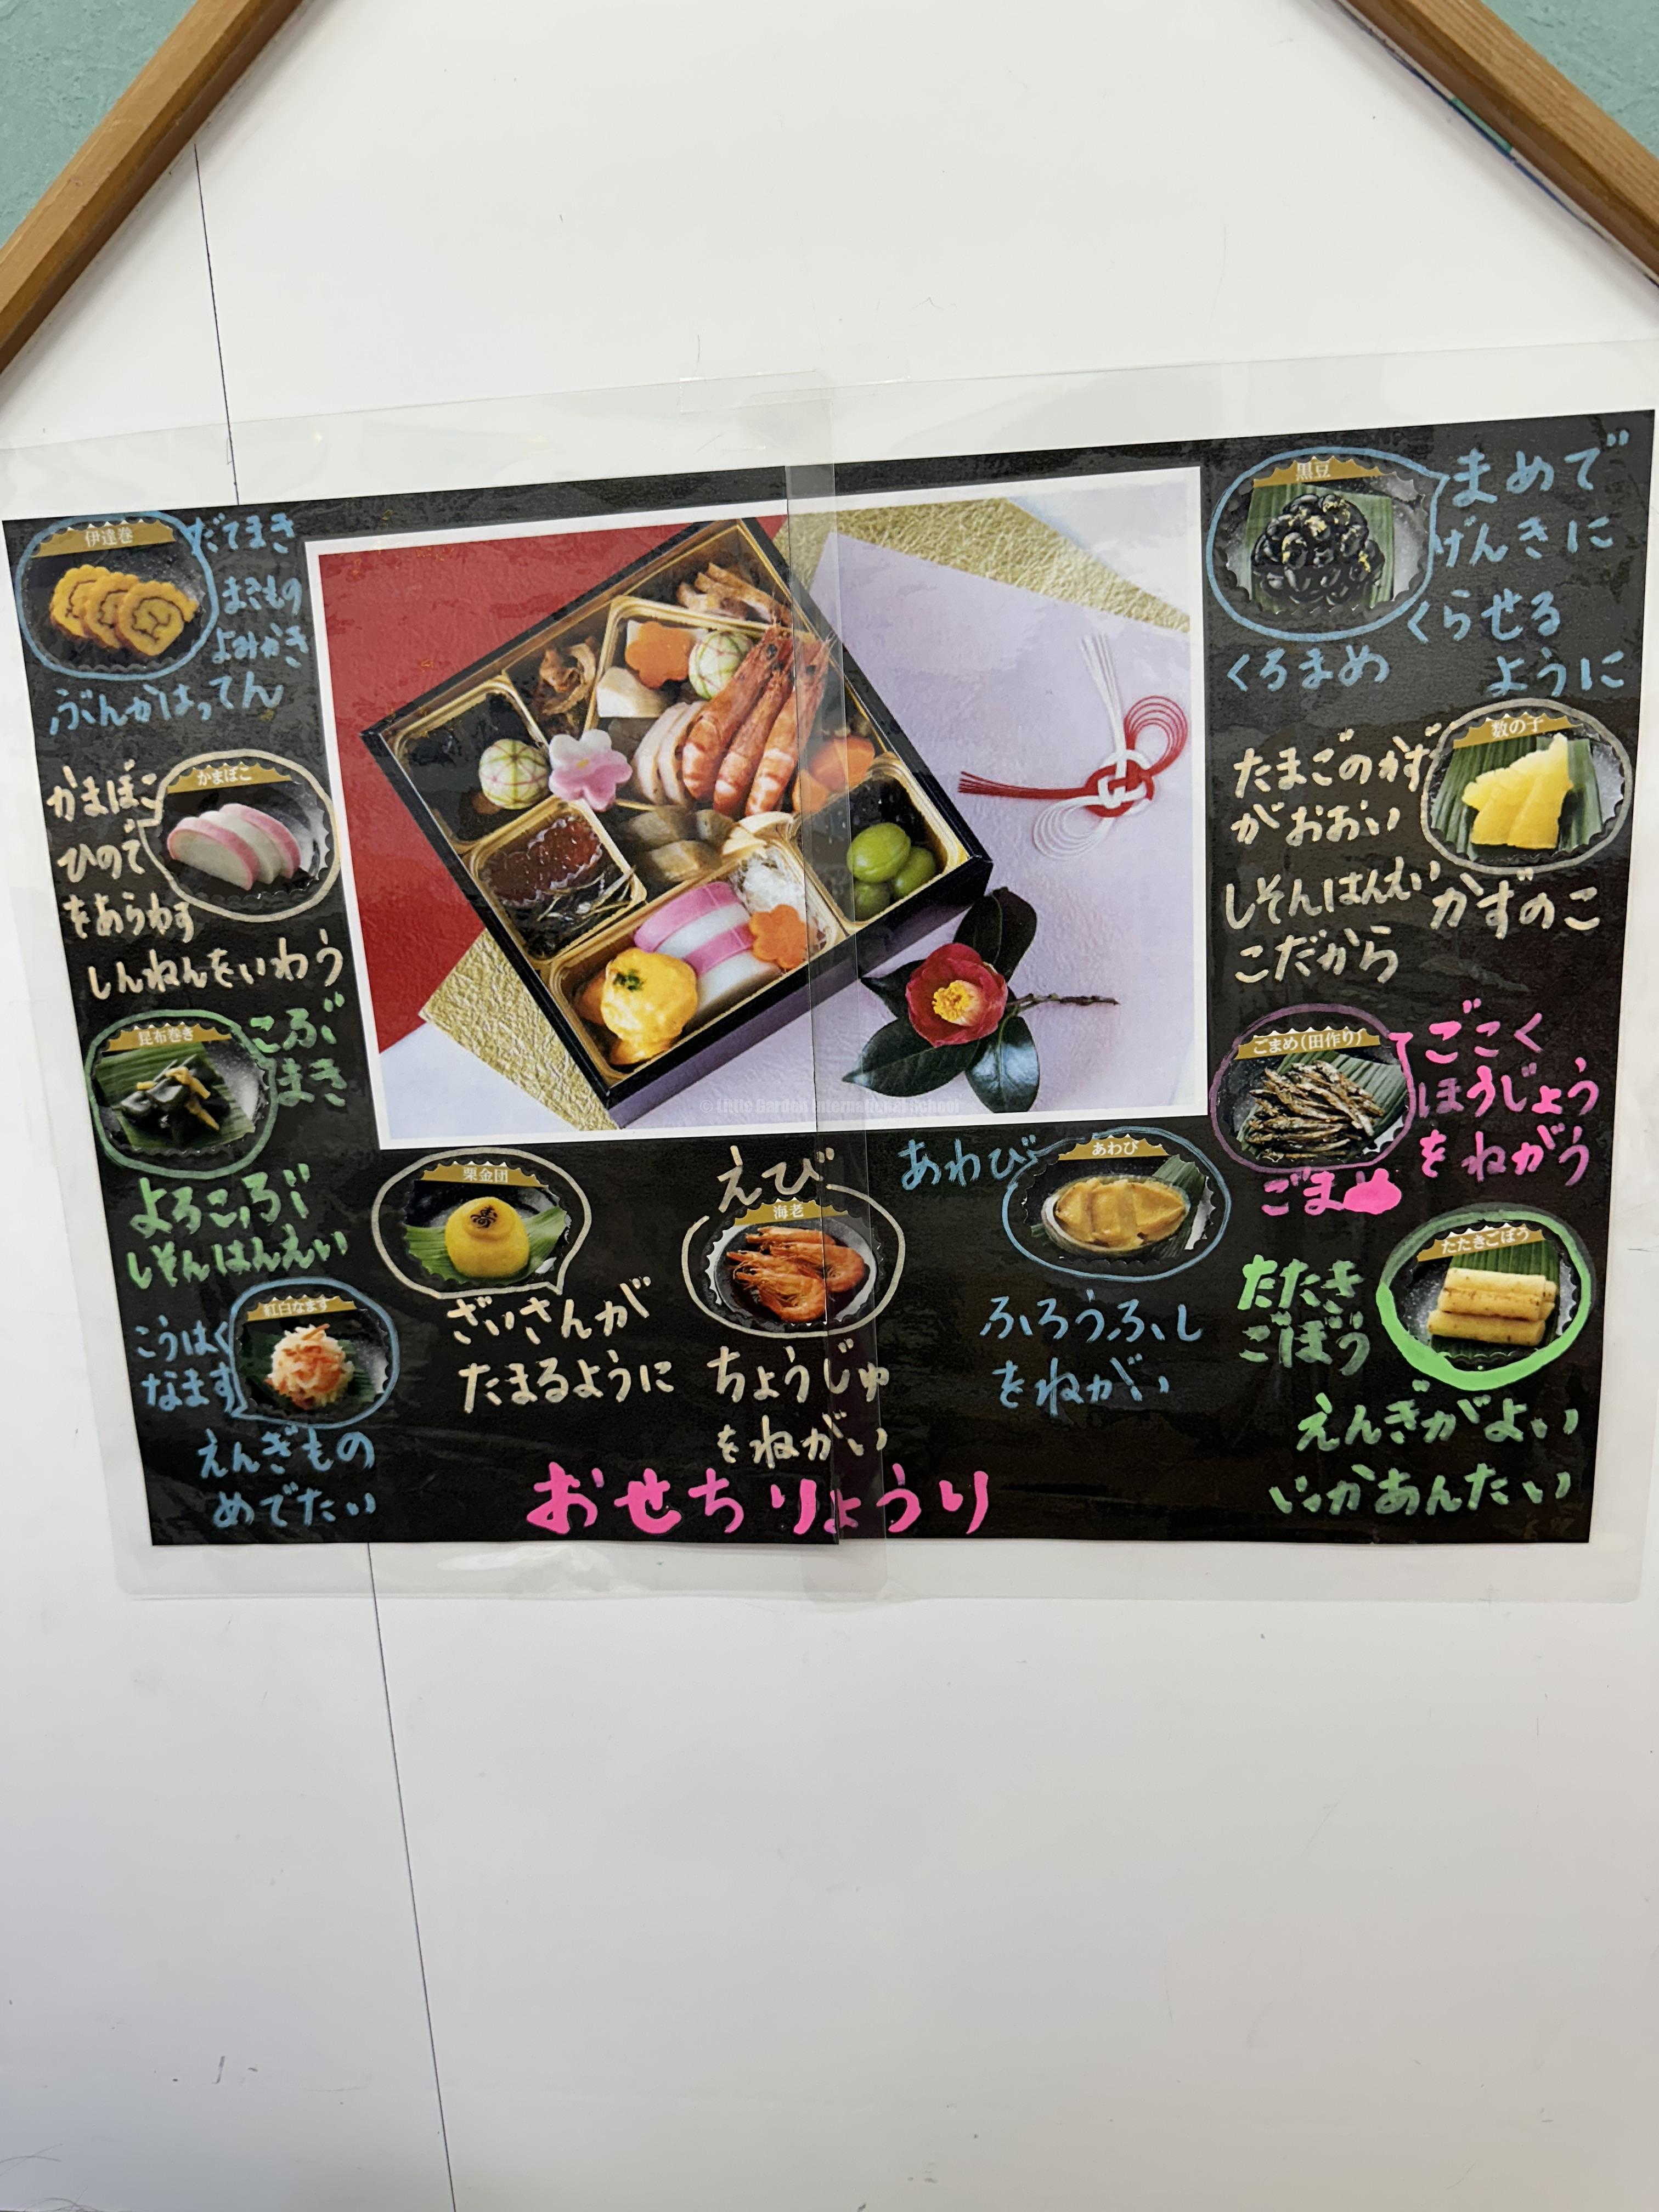 伊達巻
だてまき
まきもの
よみかき
ぶんかはってん
かまぼこ
かまぼこ
ひので
をあらわす
しんねんをいわう
昆布巻き
こぶ
まき
よろこぶ
しそんはんえい
紅白なます
こうはく
なます
えんぎもの
めでたい
栗金団
ざいさんが
たまるように
えび
海老
ちょうじゅ
をねがい
おせちりょうり
あわび
あわび
ふろうふし
をねがい
黒豆
まめで
げんきに
くらせる
ように
くろまめ
数の子
たまごのかず
がおおい
しそんはんえい
こだから
かずのこ
ごまめ(田作り)
ごこく
ほうじょう
をねがう
ごまめ
たたきごぼう
たたき
ごぼう
えんぎがよい
いっかあんたい
© Little Garden International School